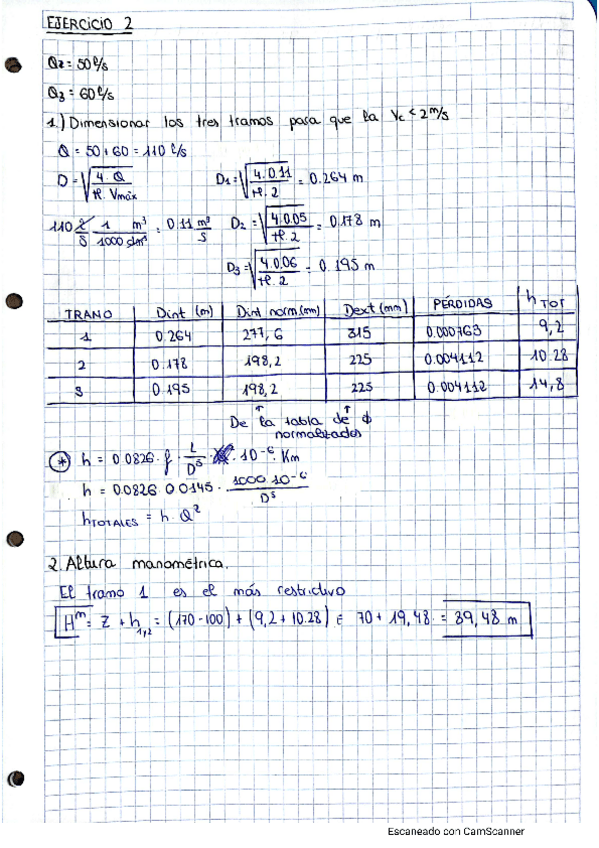 EJERCICIO 2
Q2 = 50 l/s
Q3 = 60 l/s
1.) Dimensionar los tres tramos para que la Vc < 2 m/s
Q = 50 + 60 = 110 l/s
D = √(4·Q / π·Vmáx)
D1 = √(4·0.11 / π·2) = 0.264 m
110 l/s · 1/1000 m³/dm³ = 0.11 m³/s
D2 = √(4·0.05 / π·2) = 0.178 m
D3 = √(4·0.06 / π·2) = 0.195 m
TRAMO Dint (m) Dint norm (mm) Dext (mm) PÉRDIDAS hTOT
1 0.264 277,6 315 0.000763 9,2
2 0.178 198,2 225 0.004112 10.28
3 0.195 198,2 225 0.004112 14,8
↑ ↑
De la tabla de ϕ
normalizados
* h = 0.0826 · f · L/D⁵ · 10⁻⁶ · Km
h = 0.0826 · 0.0145 · 1000·10⁻⁶/D⁵
hTOTALES = h · Q²
2. Altura manométrica.
El tramo 1 es el más restrictivo
Hm = Z + h1,2 = (170-100) + (9,2 + 10.28) = 70 + 19,48 = 89,48 m
Escaneado con CamScanner